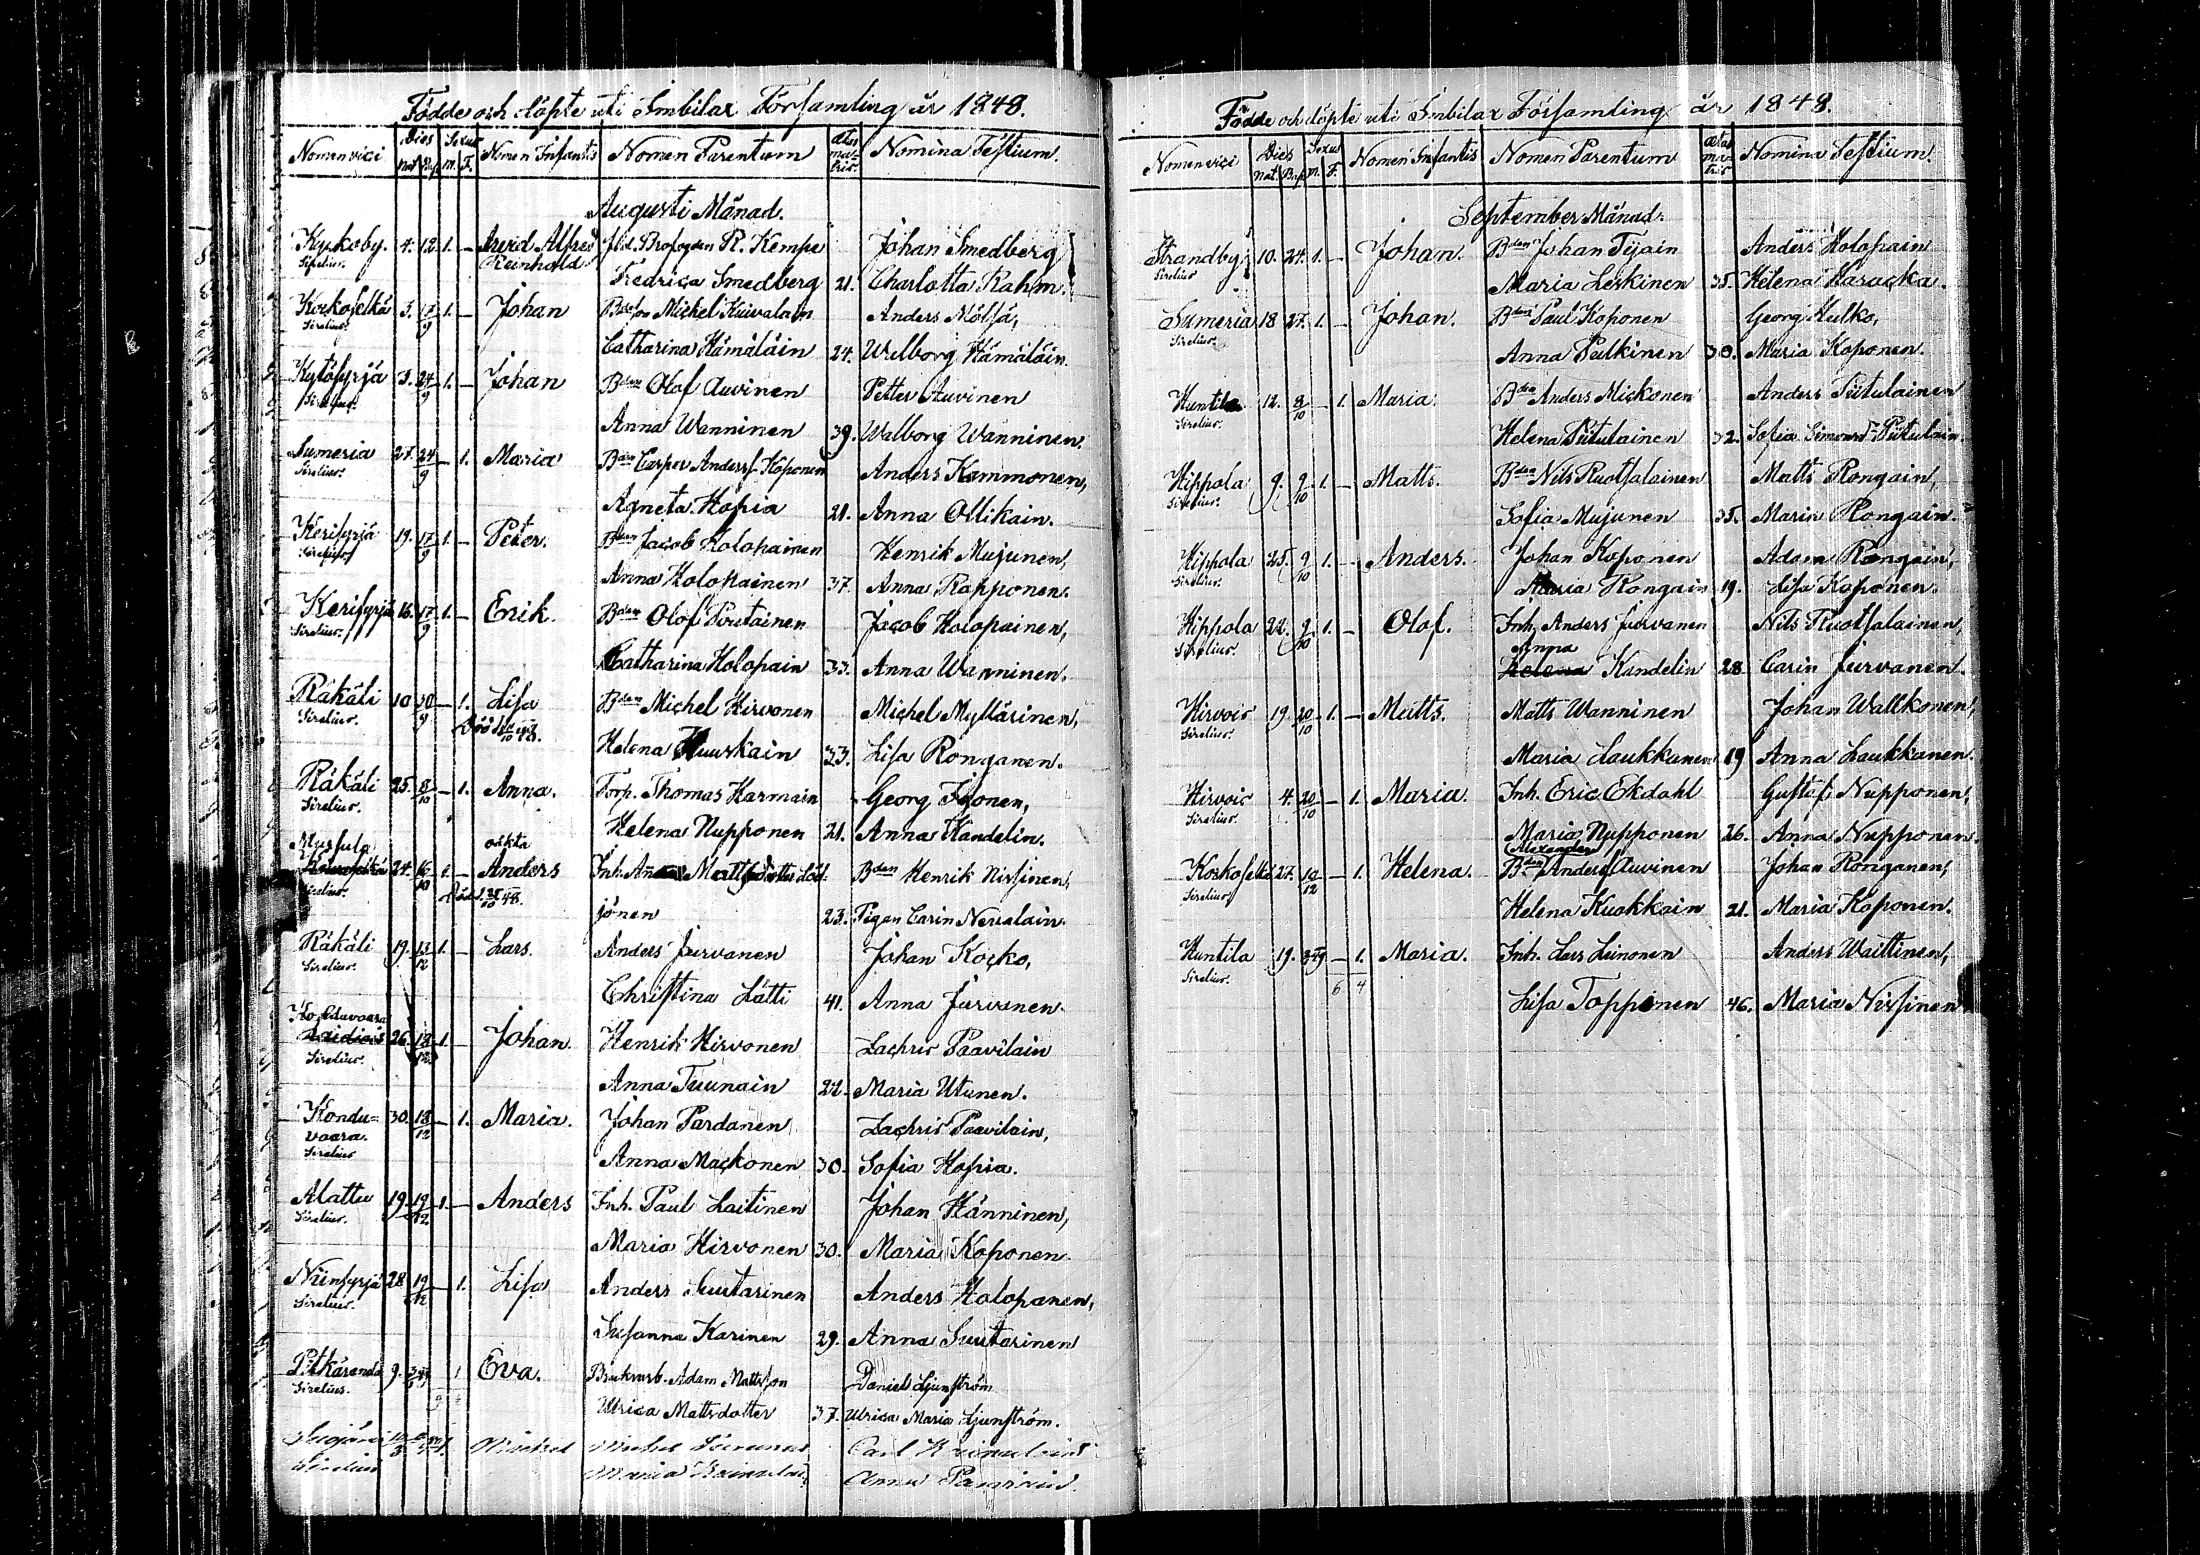 Födde och döpte uti Imbilax Församling år 1848.
Nomen vici Dies nat. Bap. Sexus m. F. Nomen Infantis Nomen Parentum ætas matris Nomina Testium.
Augusti Månad.
Kyrkoby. 4. 12. 1. – Arvid Alfred R. Kempe Johan Smedberg
Sirelius. Reinhold Fredrica Smedberg 21. Charlotta Rahm.
Koskoselkä 3. 17/9 1. – Johan Michel Kuivalain Anders Mölsä,
Sirelius. Catharina Hämäläin 24. Walborg Hämäläin.
Kytösyrjä 3. 24/9 1. – Johan Bden Olof Auvinen Petter Auvinen
Sirelius. Anna Wanninen 39. Walborg Wanninen.
Sumeria 27. 24/9 – 1. Maria Bden Casper Anderss. Koponen Anders Kammonen,
Sirelius. Agneta Hapia 21. Anna Ollikain.
Kerisyrjä 19. 17/9 1. – Peter. Bden Jacob Holopainen Henrik Mujunen,
Sirelius Anna Holopainen 37. Anna Rapponen.
Kerisyrjä 16. 17/9 1. – Erik. Bden Olof Poutainen Jacob Holopainen,
Sirelius. Catharina Holopain 33. Anna Wanninen.
Räkäli 10 30/9 – 1. Lisa Bden Michel Hirvonen Michel Myllärinen,
Sirelius. Död Helena Huuskain 33. Lisa Ronganen.
Räkäli 25. 8/10 – 1. Anna. Torp. Thomas Harmain Georg Ijonen,
Sirelius. Helena Nupponen 21. Anna Kandelin.
Mursula oäkta
24. 16/10 1. – Anders Inh. Bden Henrik Nissinen,
Sirelius. Död. 28/10 48. jönen 23. Pigan Carin Nevalain.
Räkäli 19. 13/12 1. – Lars. Anders Jurvanen Johan Kocko,
Sirelius. Christina Lätti 41. Anna Jurvanen.
Konduvaara
26. 18/12 1. – Johan. Henrik Hirvonen Zachris Paavilain
Sirelius. Anna Tuunain 22. Maria Utunen.
Kondu= 30. 18/12 – 1. Maria. Johan Pardanen Zachris Paavilain,
vaara.
Sirelius Anna Mackonen 30. Sofia Hapia.
Alattu 19. 19/12 1. – Anders Inh. Paul Laitinen Johan Hänninen,
Sirelius. Maria Hirvonen 30. Maria Koponen.
Niinisyrjä 28 19/12 – 1. Lisa Anders Suutarinen Anders Holopanen,
Sirelius. Susanna Karinen 29. Anna Suutarinen
Pitkäranda 9. 1 Eva. Bruksarb. Adam Mattsson Daniel Ljunström
Sirelius. Ulrica Mattsdotter 37. Ulrica Maria Ljunström.
Michel Michel Carl
Sirelius Maria Anna
Födde och döpte uti Imbilax Församling år 1848.
Nomen vici Dies nat. Bap. Sexus m. F. Nomen Infantis Nomen Parentum ætas matris Nomina Testium.
September Månad.
Strandby 10. 24. 1. – Johan. Bden Johan Tijain Anders Holopain
Sirelius Maria Leskinen 35. Helena Haracka.
Sumeria 18 27. 1. – Johan. Bden Paul Koponen Georg Hulko,
Sirelius. Anna Pulkinen 30. Maria Koponen.
Huntila 12. 8/10 – 1. Maria. Bden Anders Mickonen Anders Piitulainen
Sirelius. Helena Piitulainen 32. Sofia Simonsd. Piitulain.
Hippola 9. 9/10 1. – Matts. Bden Nils Ruotsalainen Matts Rongain,
Sirelius. Sofia Mujunen 35. Maria Rongain.
Hippola 25. 9/10 1. – Anders. Johan Koponen Adam Rongain,
Sirelius. Maria Rongain 19. Lisa Koponen.
Hippola 22. 9/10 1. – Olof. Inh. Anders Jurvanen Nils Ruotsalainen,
Anna
Sirelius. Helena Kandelin 28 Carin Jurvanen.
Hirvois 19. 20/10 1. – Matts. Matts Wanninen Johan Wallkonen,
Sirelius. Maria Laukkanen 19 Anna Laukkanen.
Hirvois 4. 20/10 – 1. Maria. Inh. Eric Ekdahl Gustaf Nupponen,
Sirelius. Maria Nupponen 26. Anna Nupponen.
Alexander
Koskoselkä 27. 10/12 – 1. Helena. Bden Anders Auvinen Johan Ronganen,
Sirelius. Helena Kuokkain 21. Maria Koponen.
Huntila 19. – 1. Maria. Inh. Lars Leinonen Anders Waittinen,
Sirelius. 6 4 Lisa Toppinen 46. Maria Nissinen